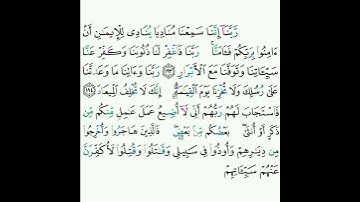 رَّبَّنَآ إِنَّنَا سَمِعْنَا مُنَادِيًا يُنَادِى لِلْإِيمَٰنِ أَنْ
ءَامِنُوا۟ بِرَبِّكُمْ فَـَٔامَنَّا ۚ رَبَّنَا فَٱغْفِرْ لَنَا ذُنُوبَنَا وَكَفِّرْ عَنَّا
سَيِّـَٔاتِنَا وَتَوَفَّنَا مَعَ ٱلْأَبْرَارِ ١٩٣ رَبَّنَا وَءَاتِنَا مَا وَعَدتَّنَا
عَلَىٰ رُسُلِكَ وَلَا تُخْزِنَا يَوْمَ ٱلْقِيَٰمَةِ ۗ إِنَّكَ لَا تُخْلِفُ ٱلْمِيعَادَ ١٩٤
فَٱسْتَجَابَ لَهُمْ رَبُّهُمْ أَنِّى لَآ أُضِيعُ عَمَلَ عَٰمِلٍ مِّنكُم مِّن
ذَكَرٍ أَوْ أُنثَىٰ ۖ بَعْضُكُم مِّنۢ بَعْضٍ ۖ فَٱلَّذِينَ هَاجَرُوا۟ وَأُخْرِجُوا۟
مِن دِيَٰرِهِمْ وَأُوذُوا۟ فِى سَبِيلِى وَقَٰتَلُوا۟ وَقُتِلُوا۟ لَأُكَفِّرَنَّ
عَنْهُمْ سَيِّـَٔاتِهِمْ